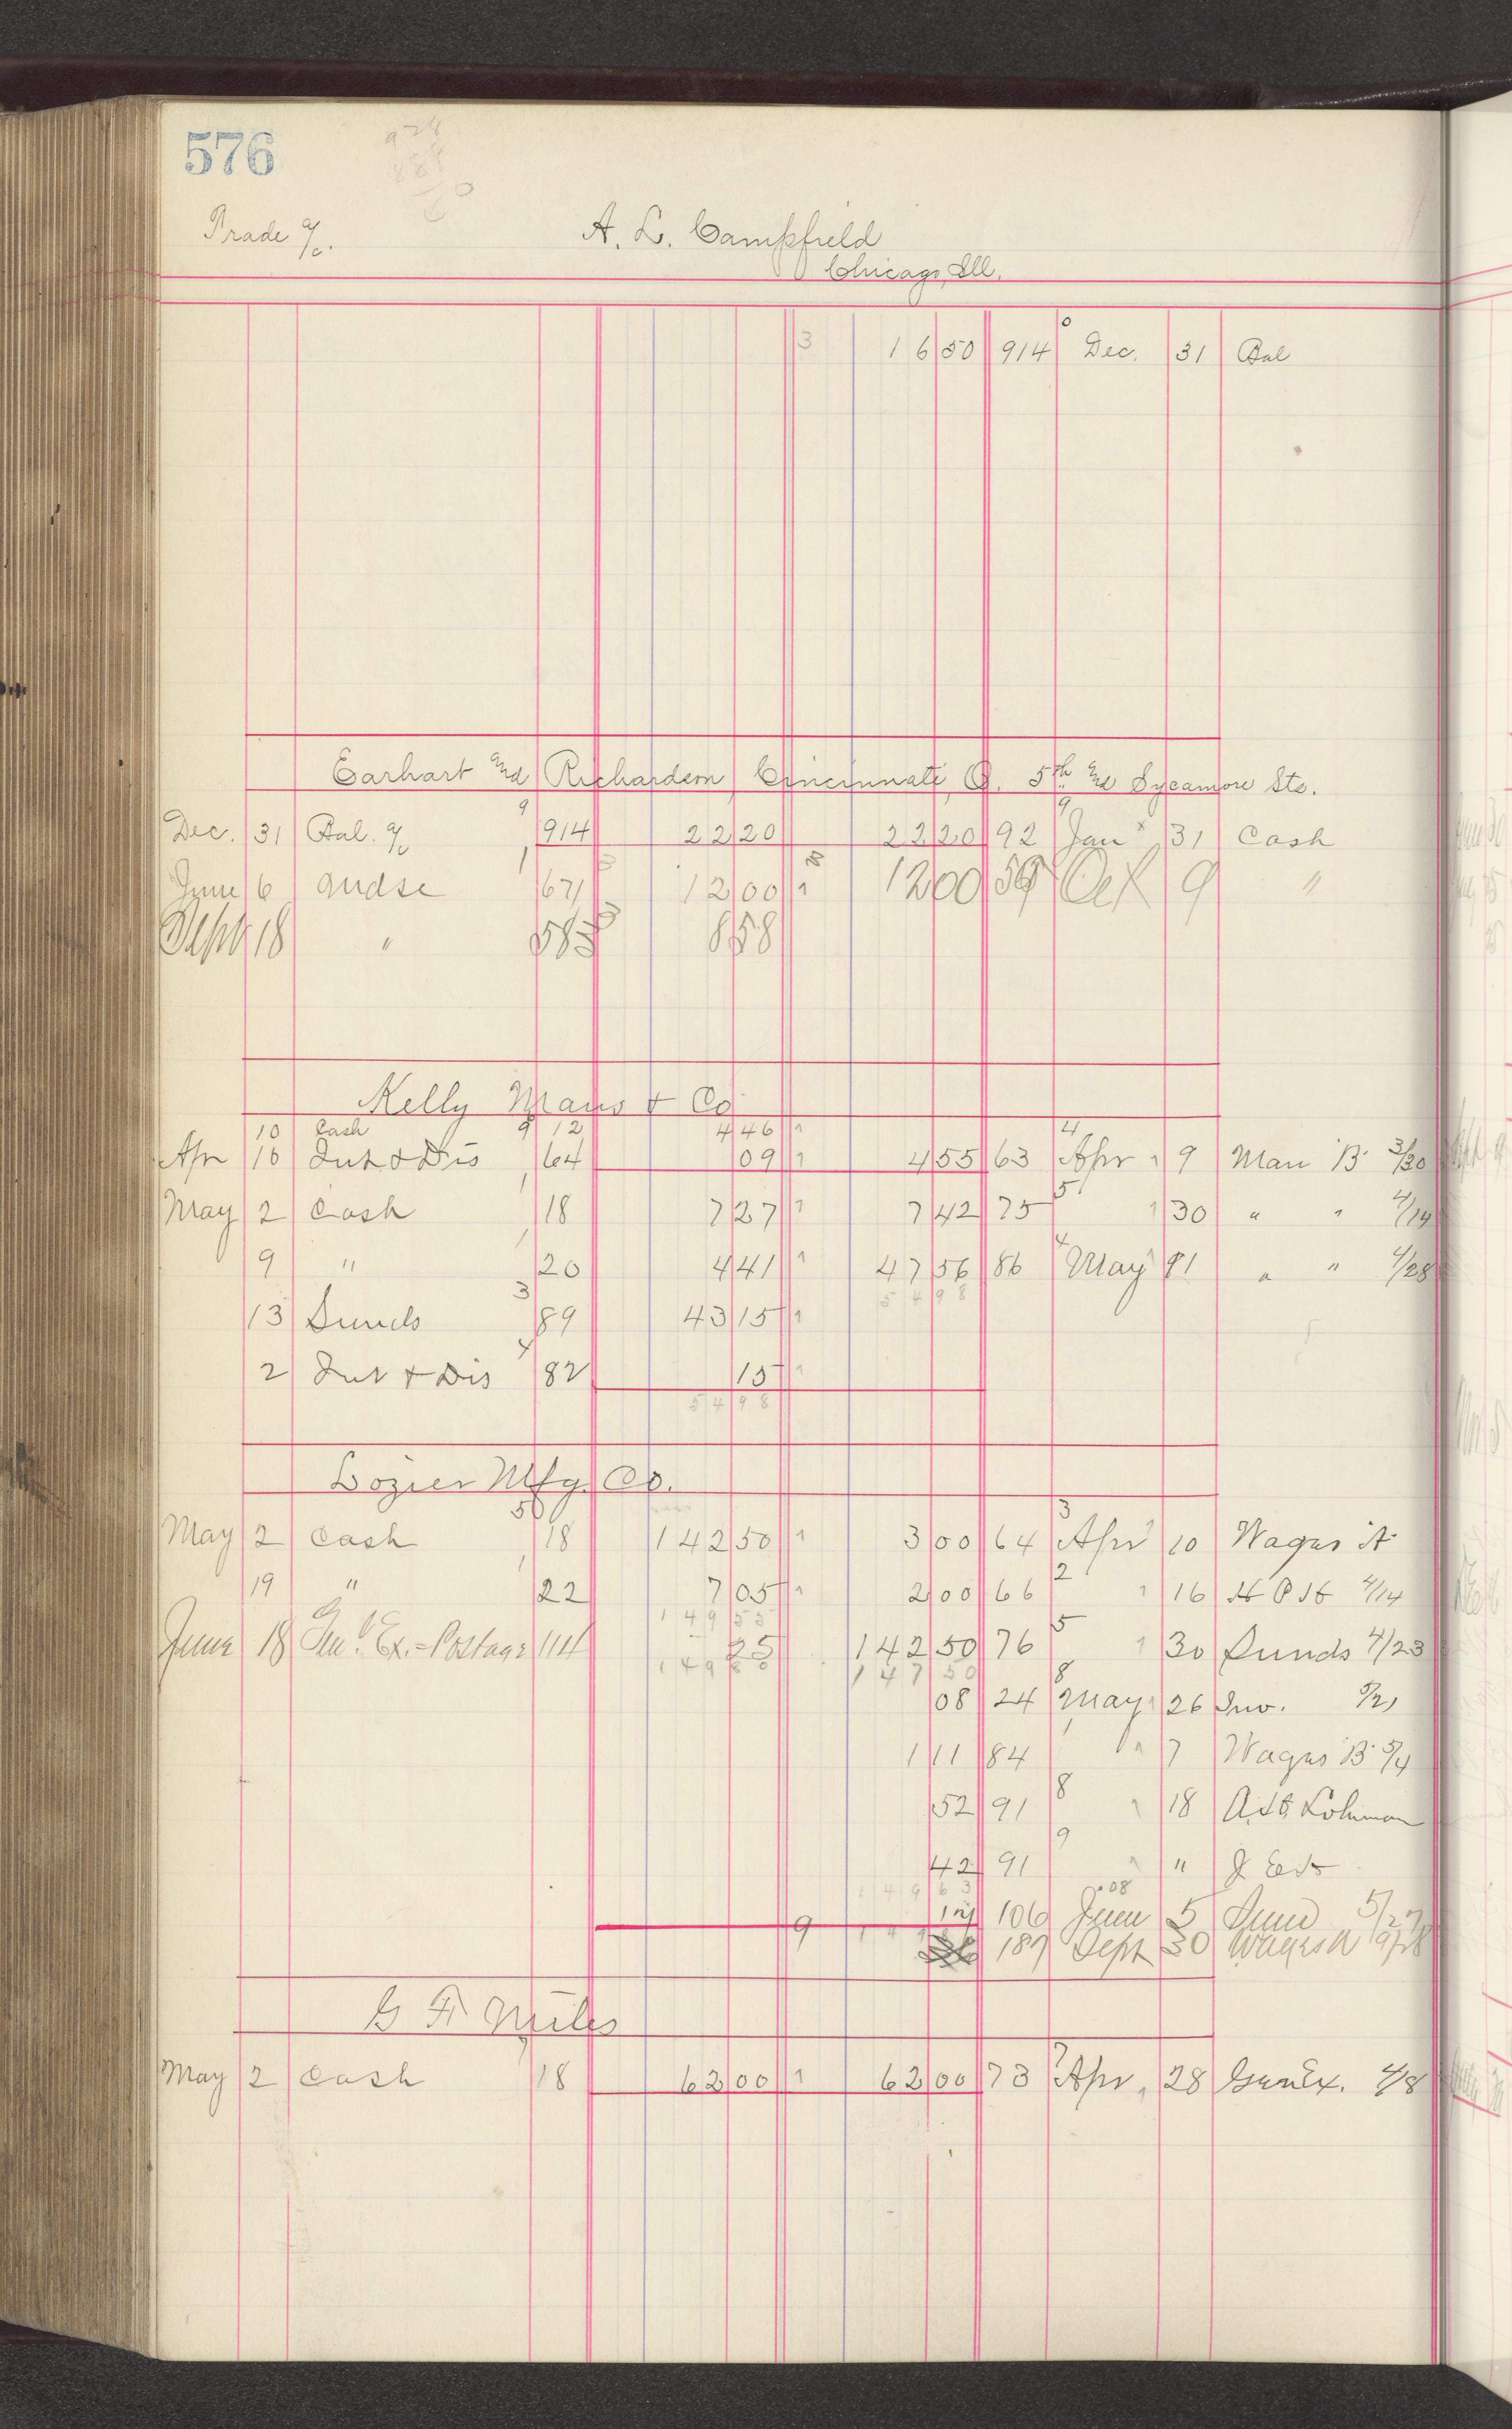 576
Trade a/c. A. L. Campfield
Chicago, Ill.
3 16 50 914 Dec. 31 Bal
Earhart and Richardson Cincinnati, O. 5th and Sycamore Sts.
Dec. 31 Bal. a/c 914 22 20 22 20 92 Jan 31 Cash
June 6 mdse 671 12 00 12 00 59 Oct 9 "
Sept 18 " 585 8 58
Kelly Maus & Co
10 Cash 12 4 46
Apr 16 Int & Dis 64 09 4 55 63 Apr 9 Man B 3/30
May 2 Cash 18 7 27 7 42 75 30 " " 4/19
9 " 20 4 41 47 56 86 May 21 " " 4/28
54 98
13 Sunds 89 43 15
2 Int & Dis 82 15
54 98
Lozier Mfg. Co.
May 2 Cash 18 142 50 3 00 64 Apr 10 Wages A
19 " 22 7 05 2 00 66 16 4/14
149 55
June 18 Gen'l Ex. = Postage 114 25 142 50 76 30 Sunds 4/23
147 50
08 24 May 26 Inv. 5/21
1 11 84 7 Wages B 5/4
52 91 18 Lohman
42 91 "
149 63
9 106 June 5 Sund 5/27
187 Sept 30 Wages A 9/28
G F Miles
May 2 Cash 18 62 00 62 00 73 Apr 28 Gen Ex. 4/8